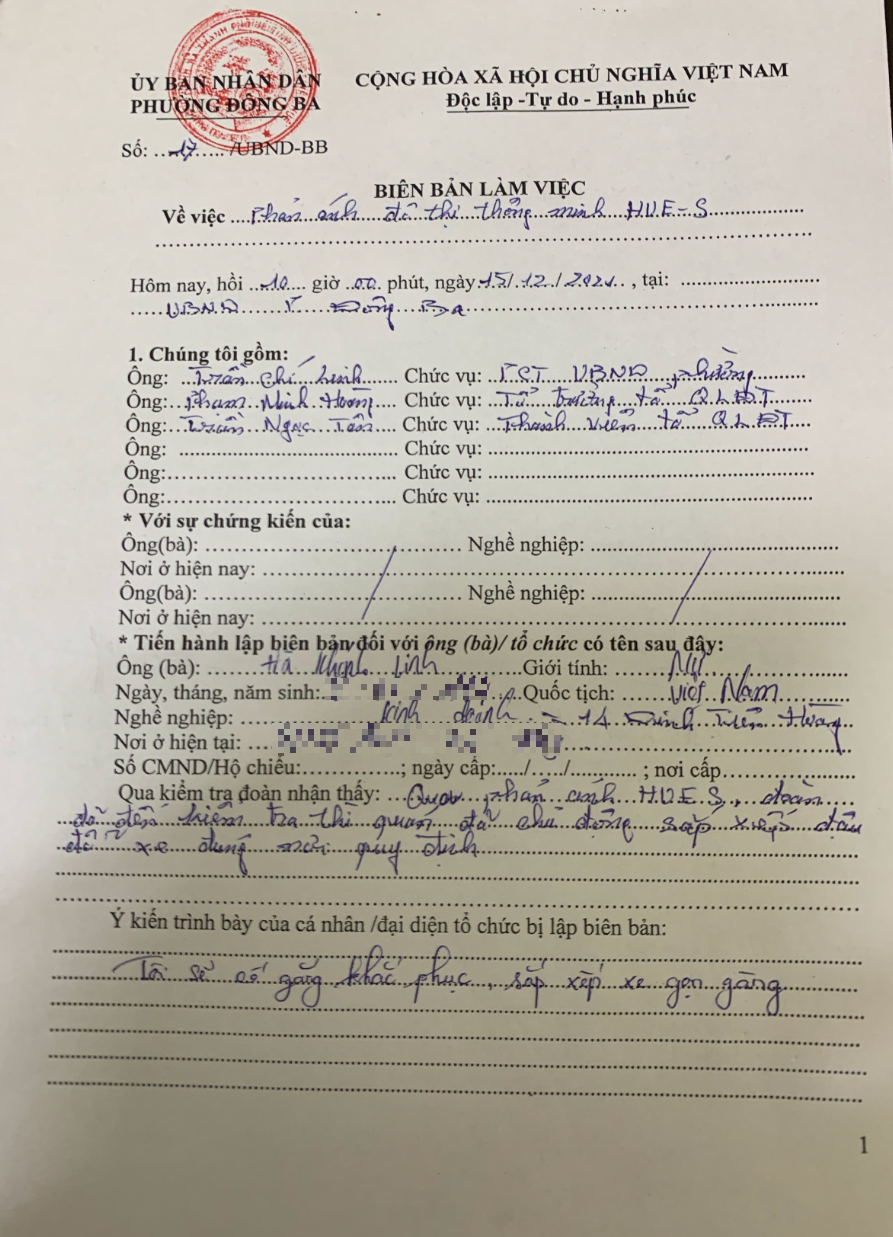 ỦY BAN NHÂN DÂN
PHƯỜNG ĐÔNG BA
CỘNG HÒA XÃ HỘI CHỦ NGHĨA VIỆT NAM
Độc lập -Tự do - Hạnh phúc
Số: ...17..... /UBND-BB
BIÊN BẢN LÀM VIỆC
Về việc ....Phản ánh đô thị thông minh HUE-S....................
Hôm nay, hồi ..10.... giờ ..00.. phút, ngày 15/.12../2021.. , tại: .............................
UBND P Đông Ba
1. Chúng tôi gồm:
Ông: ...Trần Chí ........ Chức vụ: ..PCT UBND phường
Ông: Phạm Minh Hoàng.... Chức vụ: ..Tổ trưởng tổ QLĐT
Ông: Trần Ngọc Tân..... Chức vụ: ..Thành viên tổ QLĐT
Ông: ........................................ Chức vụ: ............................................................
Ông:........................................ Chức vụ: ............................................................
Ông:........................................ Chức vụ: ............................................................
* Với sự chứng kiến của:
Ông(bà): ............................................. Nghề nghiệp: .............................................
Nơi ở hiện nay: ..........................................................................................................
Ông(bà): ............................................. Nghề nghiệp: .............................................
Nơi ở hiện nay: ..........................................................................................................
* Tiến hành lập biên bản đối với ông (bà)/ tổ chức có tên sau đây:
Ông (bà): ........Hà Khánh Linh...........Giới tính: ......Nữ..........
Ngày, tháng, năm sinh: Quốc tịch: ......Việt Nam........
Nghề nghiệp: ..................kinh doanh - 14 Đinh Tiên Hoàng
Nơi ở hiện tại: ...
Số CMND/Hộ chiếu:.............; ngày cấp:...../...../............ ; nơi cấp.....................
Qua kiểm tra đoàn nhận thấy: ...Qua phản ánh HUES, đoàn
đã đến kiểm tra thì quán đã chủ động sắp xếp đậu
đỗ xe đúng nơi quy định
Ý kiến trình bày của cá nhân /đại diện tổ chức bị lập biên bản:
Tôi sẽ cố gắng khắc phục, sắp xếp xe gọn gàng
1